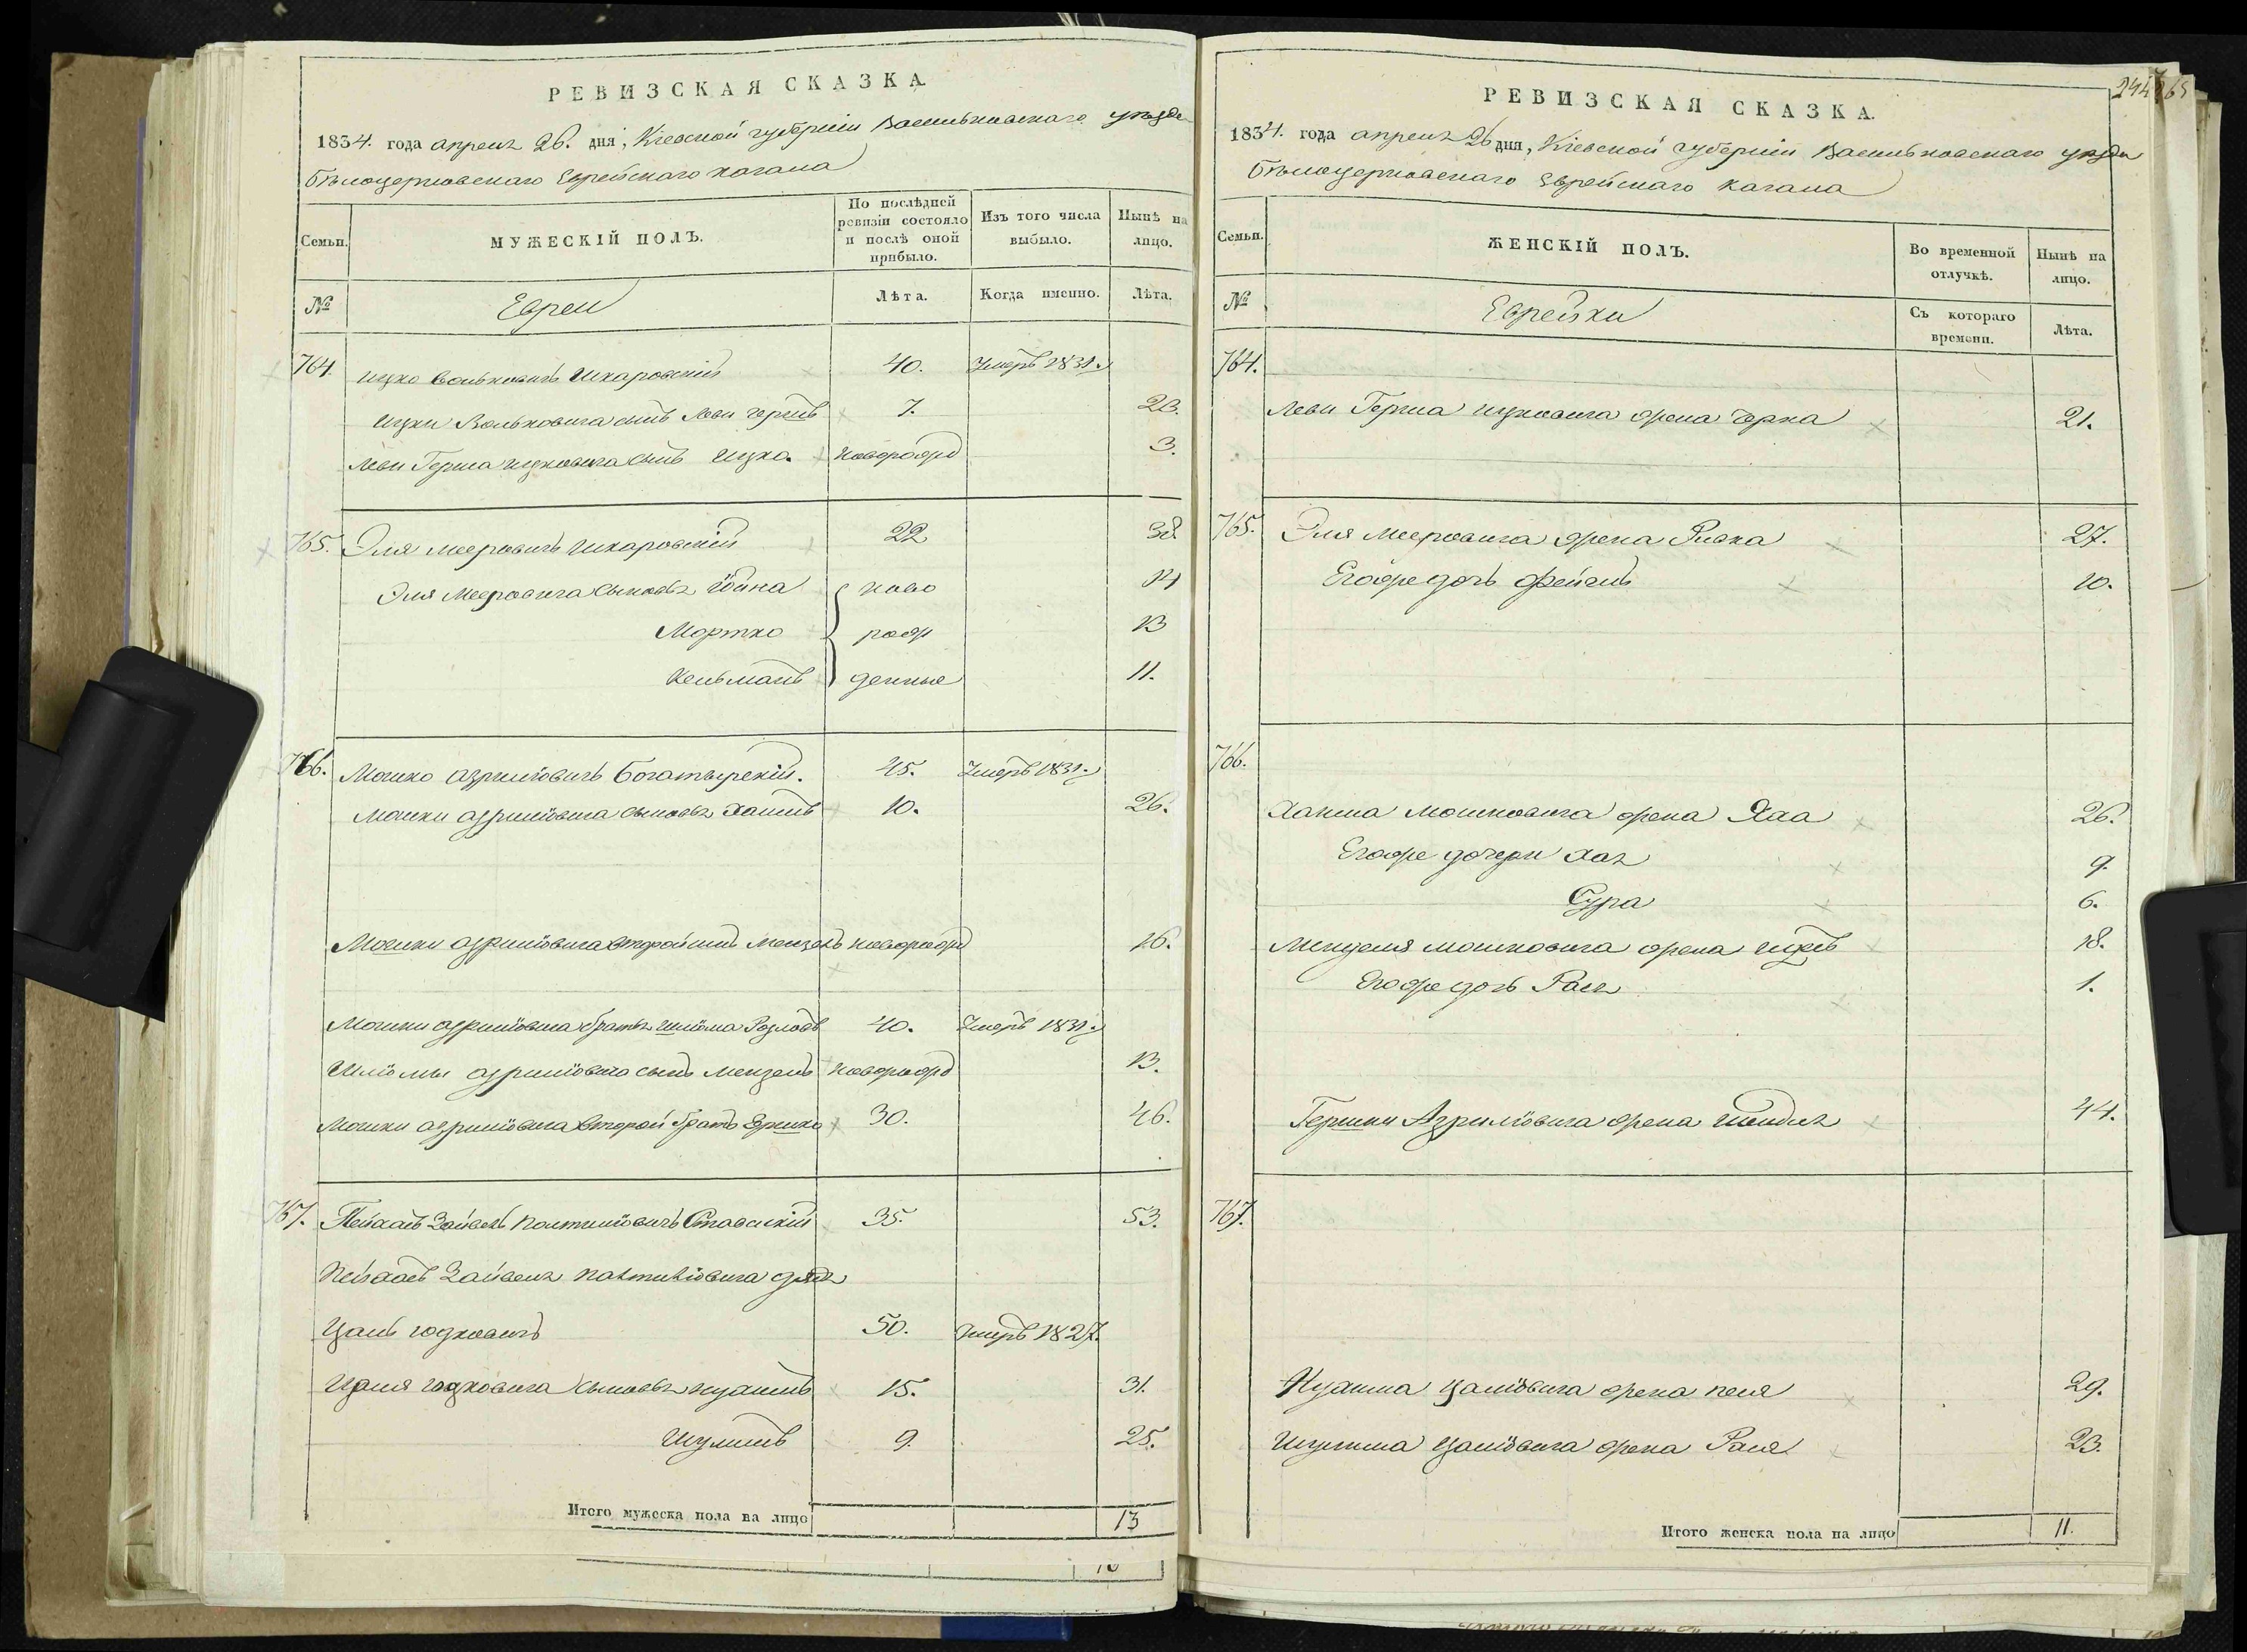 РЕВИЗСКАЯ СКАЗКА.
1834. года апреля 26. дня, Кіевской губерніи Васильковскаго уезда
Белоцерковскаго Еврейскаго кагала
Семьи.
МУЖЕСКІЙ ПОЛЪ.
По послѣдней ревизіи состояло и послѣ оной прибыло.
Изъ того числа выбыло.
Нынѣ на лицо.
№
Евреи
Лѣта.
Когда именно.
Лѣта.
764. Ицко Вольковичъ Шкаровскій 40. Умеръ 1831.
Ицки Вольковича сынъ Леви Гершъ 7. 23.
Леви Герша Ицковича сынъ Ицко. новорожд 3.
765. Эля Мееровичъ Шкаровскій 22 38
Эля Мееровича сыновья Іойна ново 14
Мортко рож 13
Кельманъ денные 11.
766. Мошко Азриліовичъ Богатырскій. 45. Умеръ 1831.
Мошки Азриліовича сыновья Хаимъ 10. 26.
Мошки Азриліовича второй сынъ Мендель новорожд 16.
Мошки Азриліовича братья Шліома 40. Умеръ 1831.
Шліомы Азриліовича сынъ Мендель новорожд 13.
Мошки Азриліовича второй братъ Ершко 30. 46.
767. Пейсахъ Зайвель Палтиліовичъ Ставскій 35. 53.
Пейсахъ Зайвеля Палтиліовича дядя
Цаль Іодковичъ 50. Умеръ 1827.
Цаля Іодковича сыновья Нухимъ 15. 31.
Шулимъ 9. 25.
Итого мужеска пола на лицо 13
РЕВИЗСКАЯ СКАЗКА.
1834. года апреля 26 дня, Кіевской губерніи Васильковскаго уезда
Белоцерковскаго Еврейскаго кагала
Семьи.
ЖЕНСКІЙ ПОЛЪ.
Во временной отлучкѣ.
Нынѣ на лицо.
№
Еврейки
Съ котораго времени.
Лѣта.
764.
Леви Герша Ицковича жена 21.
765. Эля Мееровича жена Ривка 27.
Егоже дочь Фейгль 10.
766.
Хаима Мошковича жена Хая 26.
Егоже дочери Хая 9.
Сура 6.
Менделя Мошковича жена 18.
Егоже дочь Рася 1.
Гершки Азриліовича жена 44.
767.
Нухима Цаліовича жена Песя 29.
Шулима Цаліовича жена Рася 23.
Итого женска пола на лицо 11.